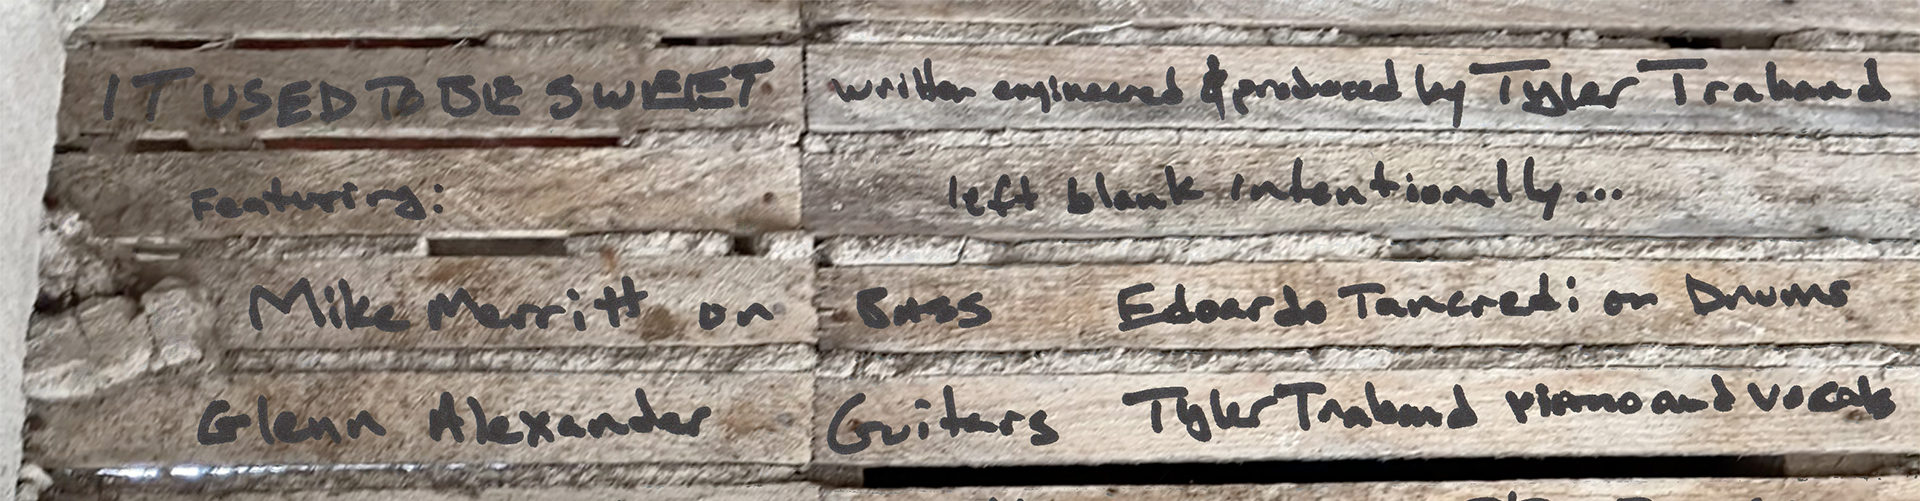 IT USED TO BE SWEET written engineered & produced by Tyler Traband
Featuring: left blank intentionally...
Mike Merritt on Bass Edoardo Tancredi on Drums
Glenn Alexander Guitars Tyler Traband piano and vocals